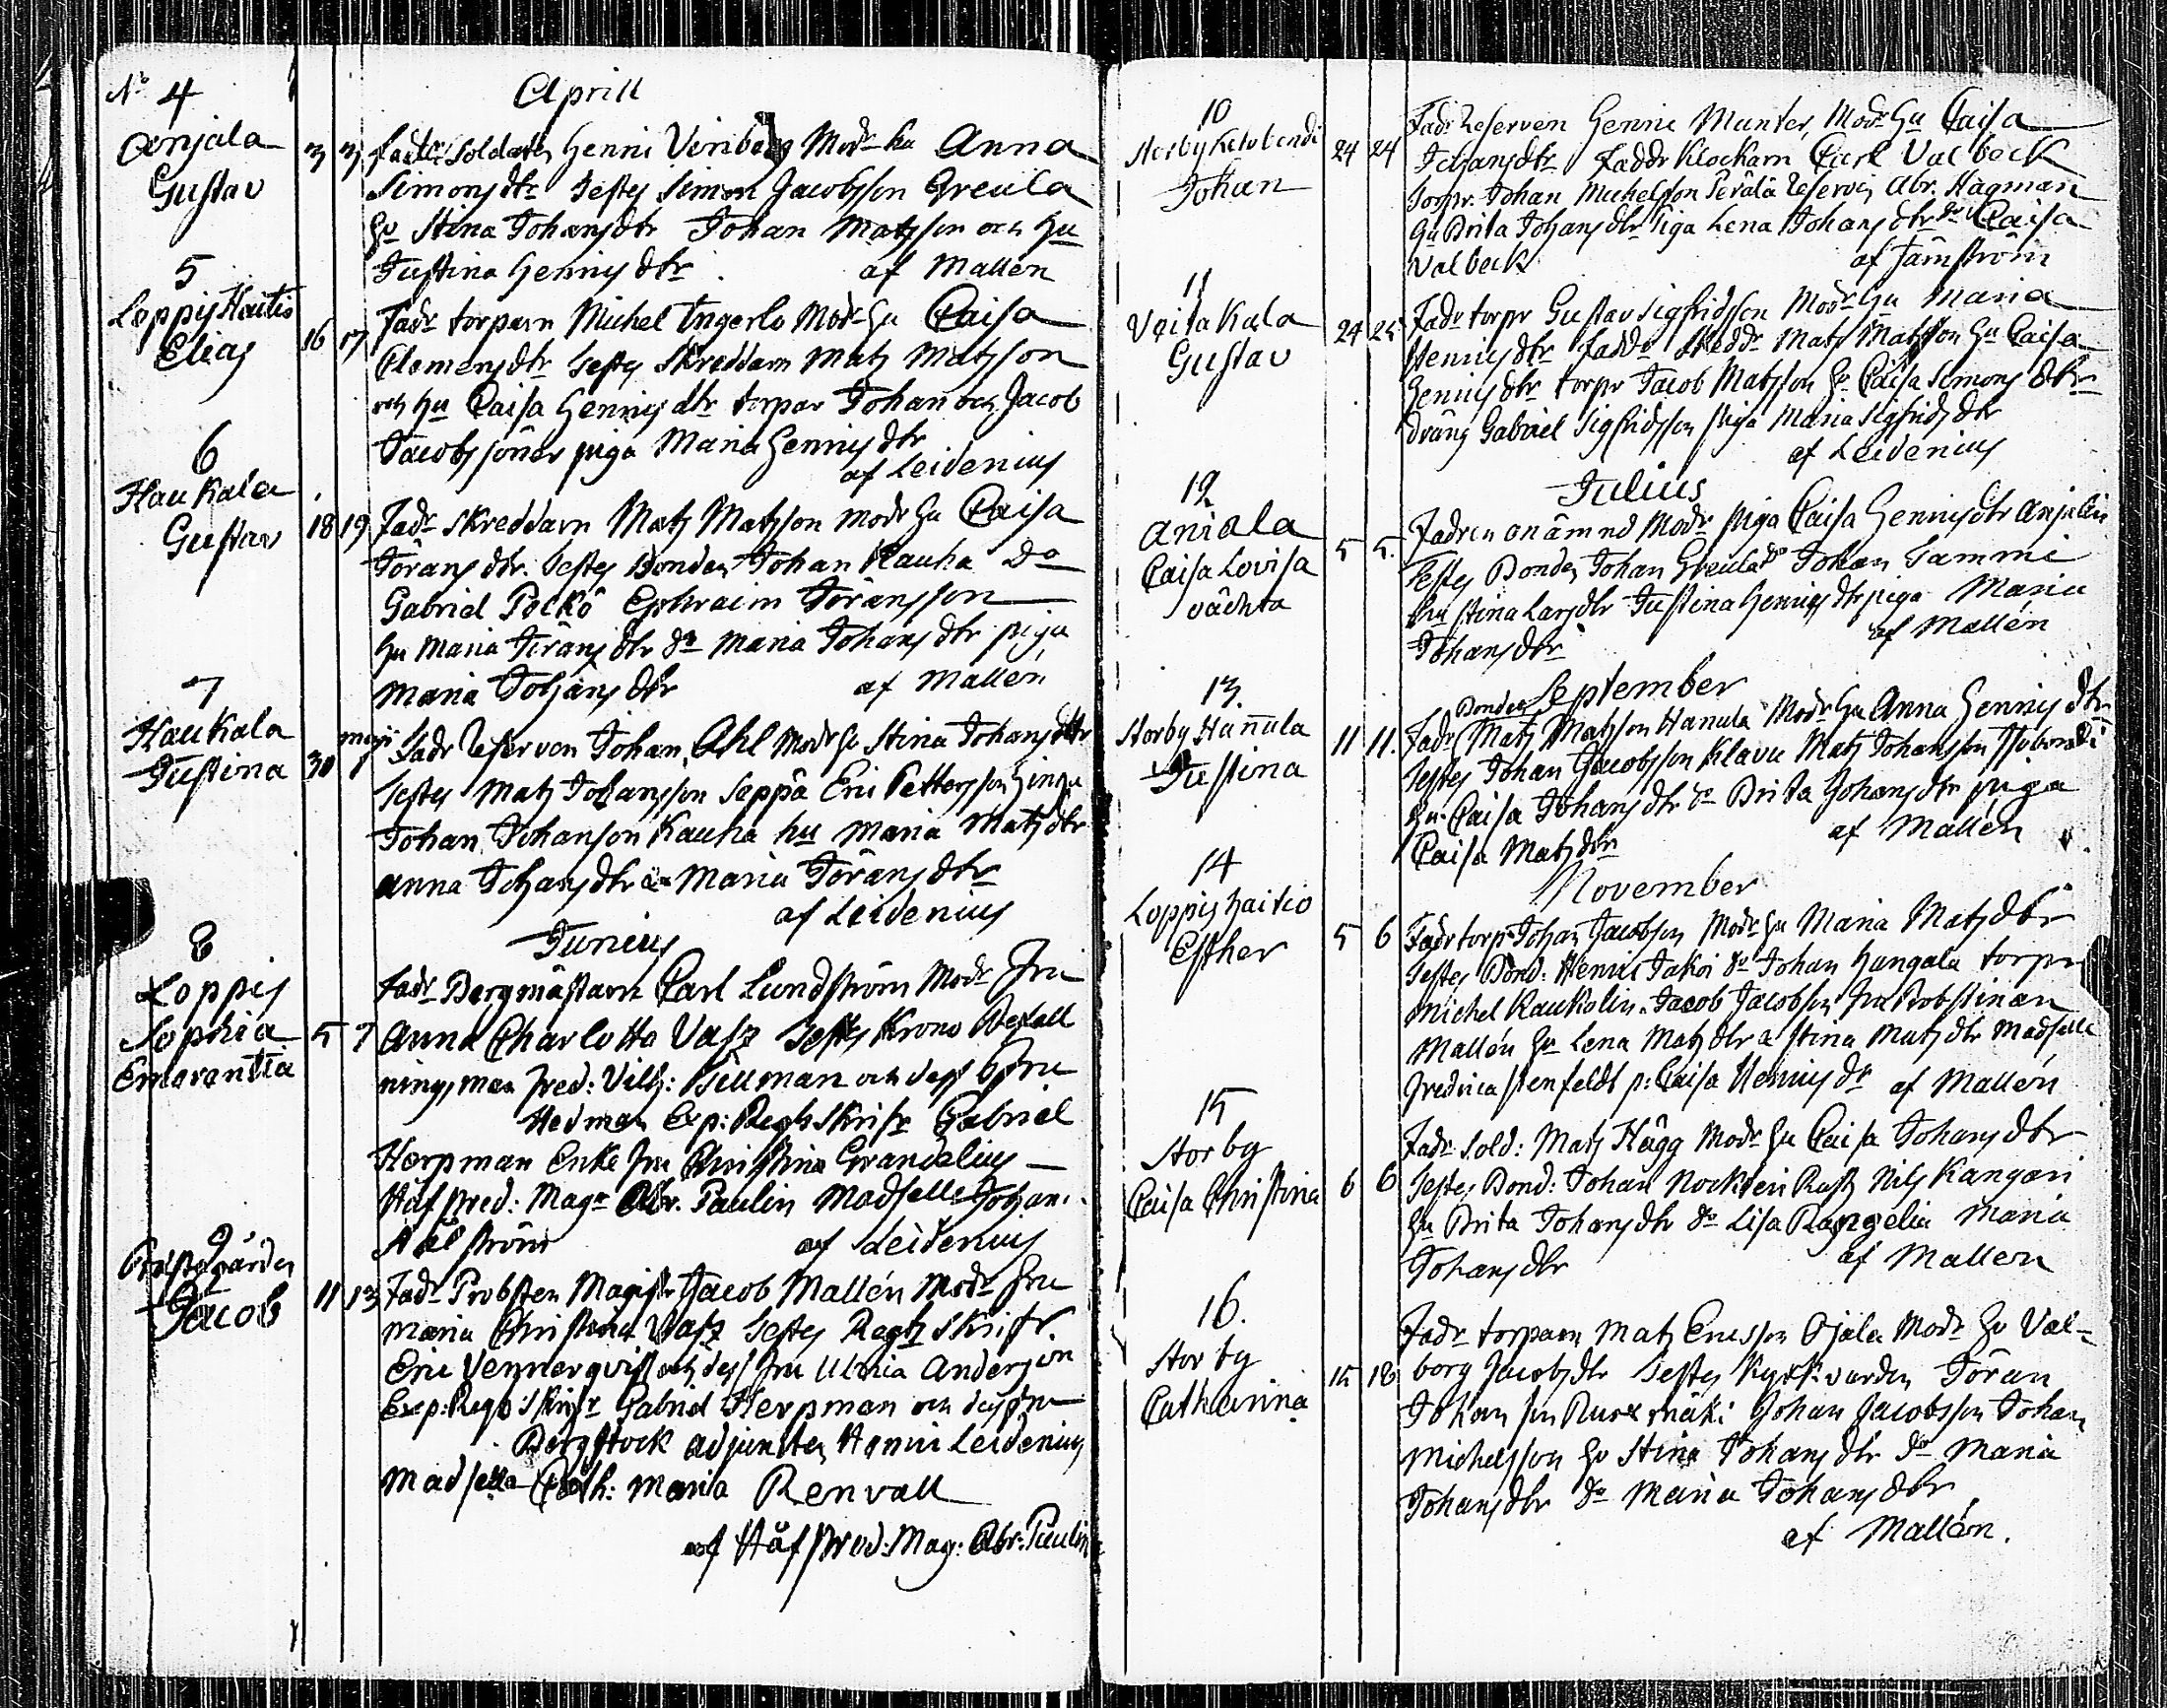 No 4
Aprill
Anjala
Gustav
3 3 Fadr Soldaten Henric Vinberg Modr hu Anna
Simonsdtr Testes Simon Jacobsson Greula
hu Stina Johansdtr Johan Matsson och hu
Justina Henricsdtr af Mallén
5
Loppis Haitio
Elias
16 17 Fadr torparn Michel Ingerlo Modr hu Caisa
Clemensdtr Testes Skreddarn Mats Matsson
och hu Caisa Henricsdtr torpar Johan och Jacob
Jacobssöner piga Maria Henricsdtr
af Leidenius
6
Haukala
Gustav
18 19 Fadr Skreddarn Mats Matsson Modr hu Caisa
Jöransdtr. Testes Bonden Johan Kauha Do
Gabriel Pockö Ephraim Jöransson
hu Maria Jöransdtr do Maria Johansdtr piga
Maria Johansdtr af Mallén
7
Haukala
Justina
30 maji 1 Fadr Reserven Johan Ahl Modr hu Stina Johansdtr
Testes Mats Johansson Seppä Eric Pettersson
Johan Johanson Kauha hu Maria Matsdtr
Anna Johansdtr Maria Jöransdtr
af Leidenius
Junius
8
Loppis
Sophia
Emerentia
5 7 Fadr Bergmästarn Carl Lundström Modr Fru
Anna Charlotta Vasz Testes Krono Befall
ningsman Fred: Vilh: Billman och dess Fru
Hedman Exp: Regts Skrifr Gabriel
Herpman Enke Fru Christina Grandelius
Håf Pred: Magr Abr. Paulin Madselle Johan.
Ahlström af Leidenius
9
Prestgården
Jacob
11 13 Fadr Probsten Magistr Jacob Mallén Modr Fru
Maria Christina Vasz Testes Regts Skrifr.
Eric Vennerqvist och dess Fru Ulrica Anderson
Exp: Regts Skrifr Gabriel Herpman och dess Fru
Bergstock adjuncten Henric Leidenius
Madsella Cath: Maria Renvall
af Håf Pred: Mag: Abr: Paulin
10
Storby
Johan
24 24 Fadr Reserven Henric Munter, Modr hu Caisa
Johansdtr Faddr Klockarn Carl Valbeck
Torpr Johan Michelsson Perälä Reserven Abr. Hagman
hu Brita Johansdtr Piga Lena Johansdtr do Caisa
Valbeck af Jämström
11
Voitakala
Gustav
24 25 Fadr torpr Gustav Sigfridsson Modr hu Maria
Henricsdtr Faddr Skreddr Mats Matsson hu Caisa
Henricsdtr torpr Jacob Matsson hu Caisa Simonsdtr
dräng Gabriel Sigfridsson piga Maria Sigfridsdtr
af Leidenius
Julius
12
Aniala
Caisa Lovisa
oächta
5 5. Fadren onämnd Modr piga Caisa Henricsdtr Anjalin
Testes Bonden Johan Greula do Johan Tammi
hu Stina Larsdtr Justina Henricsdtr piga Maria
Johansdtr af Mallén
September
13.
Storby Hannula
Justina
11 11. Fadr Bonden Mats Matsson Hanula Modr hu Anna Henricsdtr
Testes Johan Jacobsson Klavu Mats Johansson
hu Caisa Johansdtr do Brita Johansdtr piga
Caisa Matsdtr af Mallén
November
14
Loppis haitio
Esther
5 6 Fadr torpr Johan Jacobson Modr hu Maria Matsdtr
Testes Bond: Henric Jakoi do Johan Hangala torpr
Michel Kaukolin. Jacob Jacobson Fru Probstinan
Mallén hu Lena Matsdtr Stina Matsdtr Madselle
Fredrica Stenfeldt p: Caisa Henricsdr af Mallén
15
Storby
Caisa Christina
6 6 Fadr Sold: Mats Hägg Modr hu Caisa Johansdtr
Testes Bond: Johan Nockteri Rust Nils Kangari
hu Brita Johansdtr do Lisa Rangelia Maria
Johansdtr af Mallén
16.
Storby
Catharina
15 18 Fadr torparn Mats Ericsson Ojala Modr hu Val-
borg Jacobsdtr Testes Kyrkvärden Jöran
Johansson Ruosmäki Johan Jacobsson Johan
Michelsson hu Stina Johansdtr do Maria
Johansdtr do Maria Johansdtr
af Mallén.